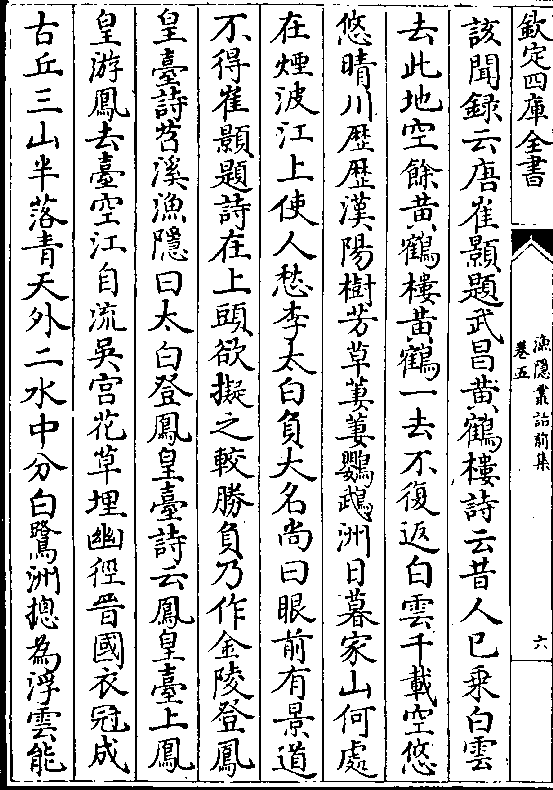 欽定四庫全書
漁隱叢話前集
卷五
六
該聞録云唐崔顥題武昌黄鶴樓詩云昔人已乘白雲
去此地空餘黄鶴樓黄鶴一去不復返白雲千載空悠
悠晴川歴歴漢陽樹芳草萋萋鸚鵡洲日暮家山何處
在煙波江上使人愁李太白負大名尚曰眼前有景道
不得崔顥題詩在上頭欲擬之較勝負乃作金陵登鳳
皇臺詩苕溪漁隱曰太白登鳳皇臺詩云鳳皇臺上鳳
皇游鳳去臺空江自流吳宫花草埋幽徑晉國衣冠成
古丘三山半落青天外二水中分白鷺洲摠為浮雲能